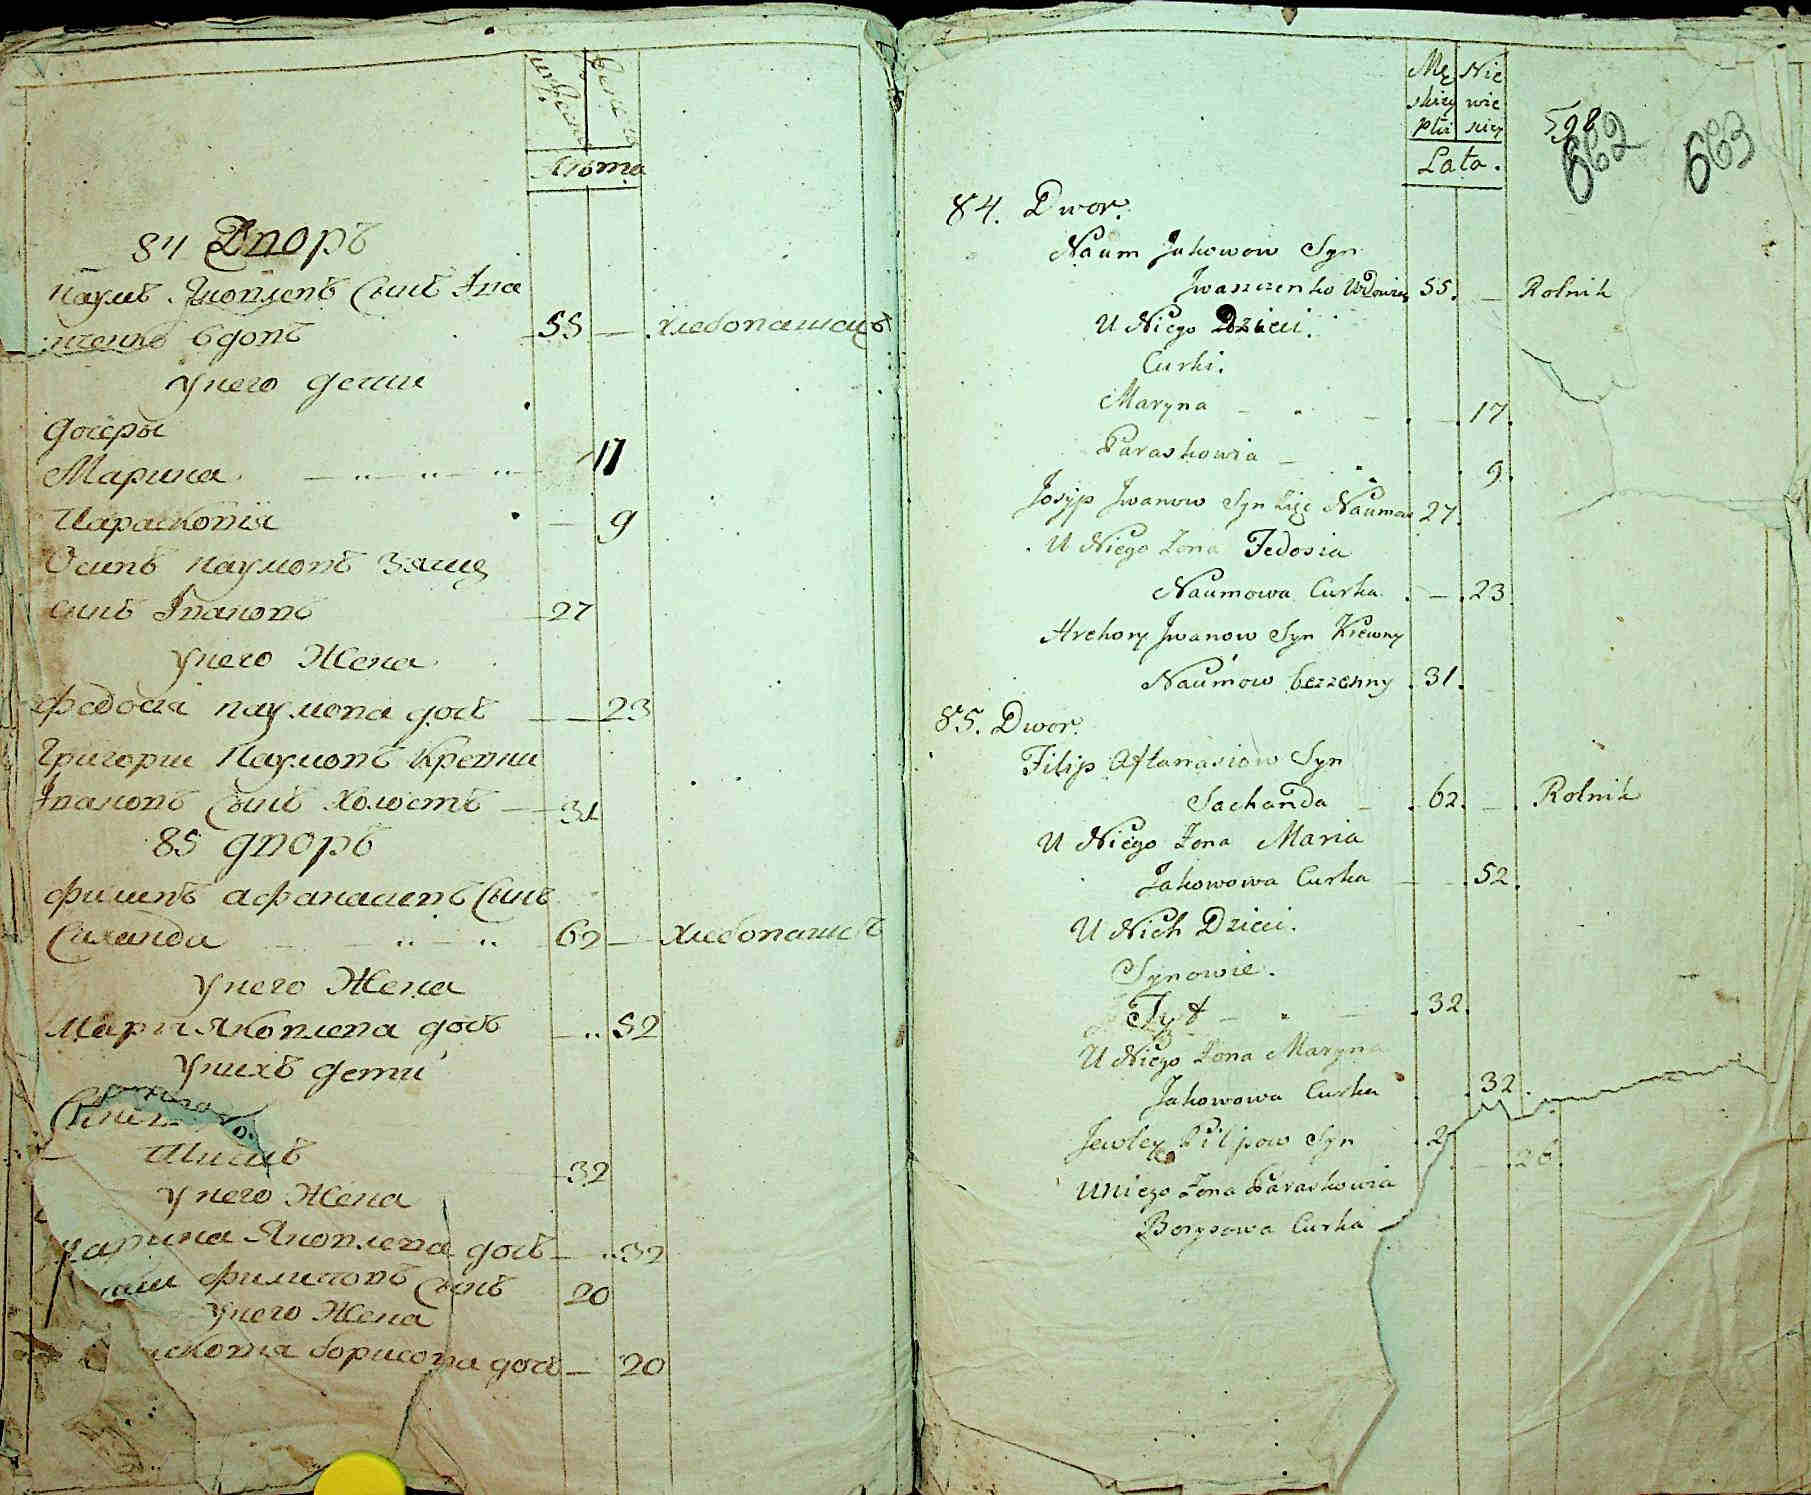 лѣта
84 Дворъ
Наумъ Яковлевъ Сынъ Ива
щенко вдовъ 55 — хлебопашецъ
у него дети
дочеры
Марина 17
Парасковия — 9
Осипъ наумовъ Зять
Сынъ Ивановъ 27
у него Жена
федосия наумова дочь — 23
Григории Наумовъ Кревни
Ивановъ Сынъ Холостъ — 31
85 дворъ
филипъ афанасиевъ Сынъ
62 — Хлебопашецъ
у него Жена
Мария Яковлева дочь — 52
у нихъ дети
32
у него Жена
Марина Яковлева дочь — 32
филиповъ Сынъ 20
у него Жена
борисова дочь — 20
Mę Nie
skiey wie
płci sciey
Lata.
598
662 663
84. Dwor.
Naum Jakowow Syn
Jwaszczenko Wdowiec 55. — Rolnik
U Niego Dzieci.
Curki.
Maryna — 17.
Paraskowia — 9.
Josyp Jwanow Syn Zięć Naumow 27.
U Niego Żona Fedosia
Naumowa Curka — 23
Jwanow Syn Krewny
Naumow bezzenny 31.
85. Dwor.
Filip Aftanasiow Syn
Sachanda — 62. — Rolnik
U Niego Żona Maria
Jakowowa Curka — 52.
U Nich Dzieci.
Synowie.
Tyt — 32.
U Niego Żona Maryna
Jakowowa Curka 32.
Filipow Syn 2
U niego Żona Paraskowia 26.
Borysowa Curka —